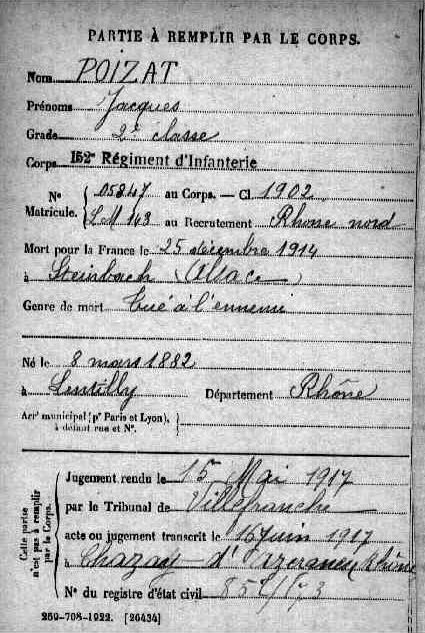 PARTIE À REMPLIR PAR LE CORPS.
Nom POIZAT
Prénoms Jacques
Grade 2e classe
Corps 152e Régiment d'Infanterie
No Matricule. 05847 au Corps. — Cl 1902
LM 143 au Recrutement Rhône nord
Mort pour la France le 25 décembre 1914
à Steinbach (Alsace)
Genre de mort Tué à l'ennemi
Né le 8 mars 1882
à Lentilly Département Rhône
Arrt municipal (pr Paris et Lyon),
à défaut rue et No.
Cette partie
n'est pas à remplir
par le Corps.
Jugement rendu le 15 Mai 1917
par le Tribunal de Villefranche
acte ou jugement transcrit le 15 juin 1917
à Chazay d'Azergues Rhône
No du registre d'état civil
259-708-1922. [26434]